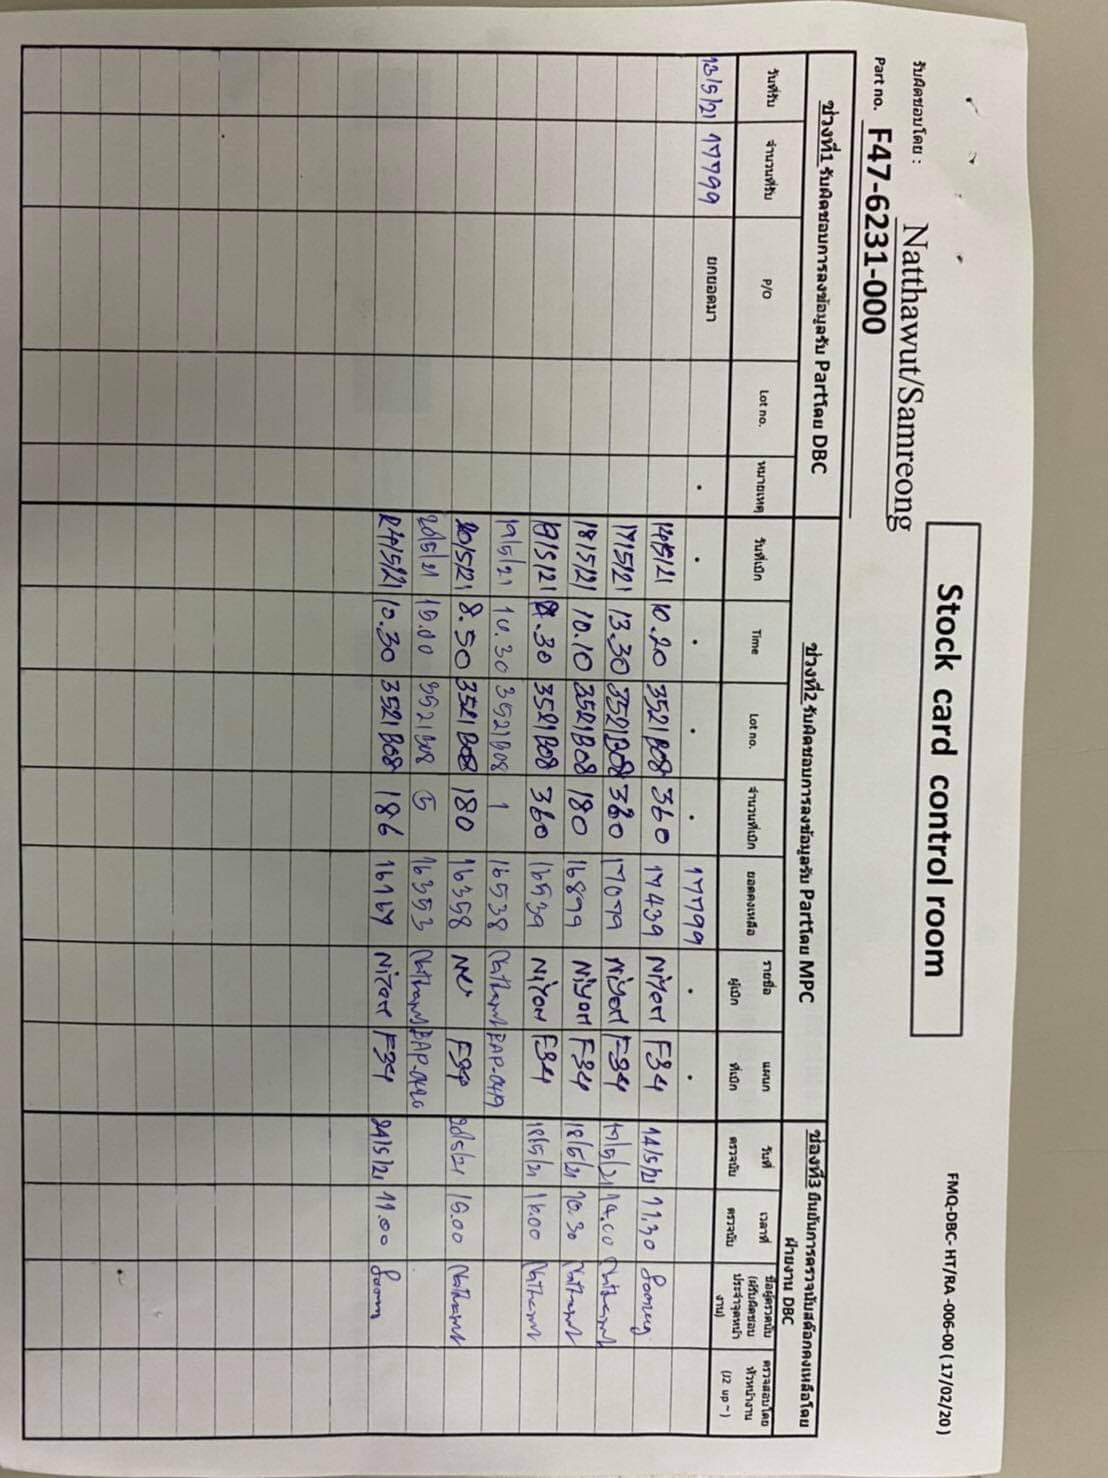 Stock card control room
FMQ-DBC- HT/RA -006-00 ( 17/02/20)
รับผิดชอบโดย : Natthawut/Samreong
Part no. F47-6231-000
ช่วงที่1 รับผิดชอบการลงข้อมูลรับ Partโดย DBC ช่วงที่2 รับผิดชอบการลงข้อมูลรับ Partโดย MPC ช่องที่3 ยืนยันการตรวจนับสต๊อกคงเหลือโดยฝ่ายงาน DBC
วันที่รับ จำนวนที่รับ P/O Lot no. หมายเหตุ วันที่เบิก Time Lot no. จำนวนที่เบิก ยอดคงเหลือ รายชื่อผู้เบิก แผนกที่เบิก วันที่ตรวจนับ เวลาที่ตรวจนับ ชื่อผู้ตรวจนับ (ผู้รับผิดชอบประจำจุดหน้างาน) ตรวจสอบโดยหัวหน้างาน (J2 up ~)
13/5/21 17799 ยกยอดมา 17799
14/5/21 10.20 3521B08 360 17439 Niyom F34 14/5/21 11.30
17/5/21 13.30 3521B08 360 17079 Niyom F34 17/5/21 14.00
18/5/21 10.10 3521B08 180 16899 Niyom F34 18/5/21 10.30
3521B08 360 16539 Niyom F34 18/5/21
19/5/21 10.30 3521B08 1 16538
20/5/21 8.50 3521B08 180 16358 F34 20/5/21 15.00
20/5/21 15.00 3521B08 5 16353
24/5/21 10.30 3521B08 186 16167 Niyom F34 24/5/21 11.00